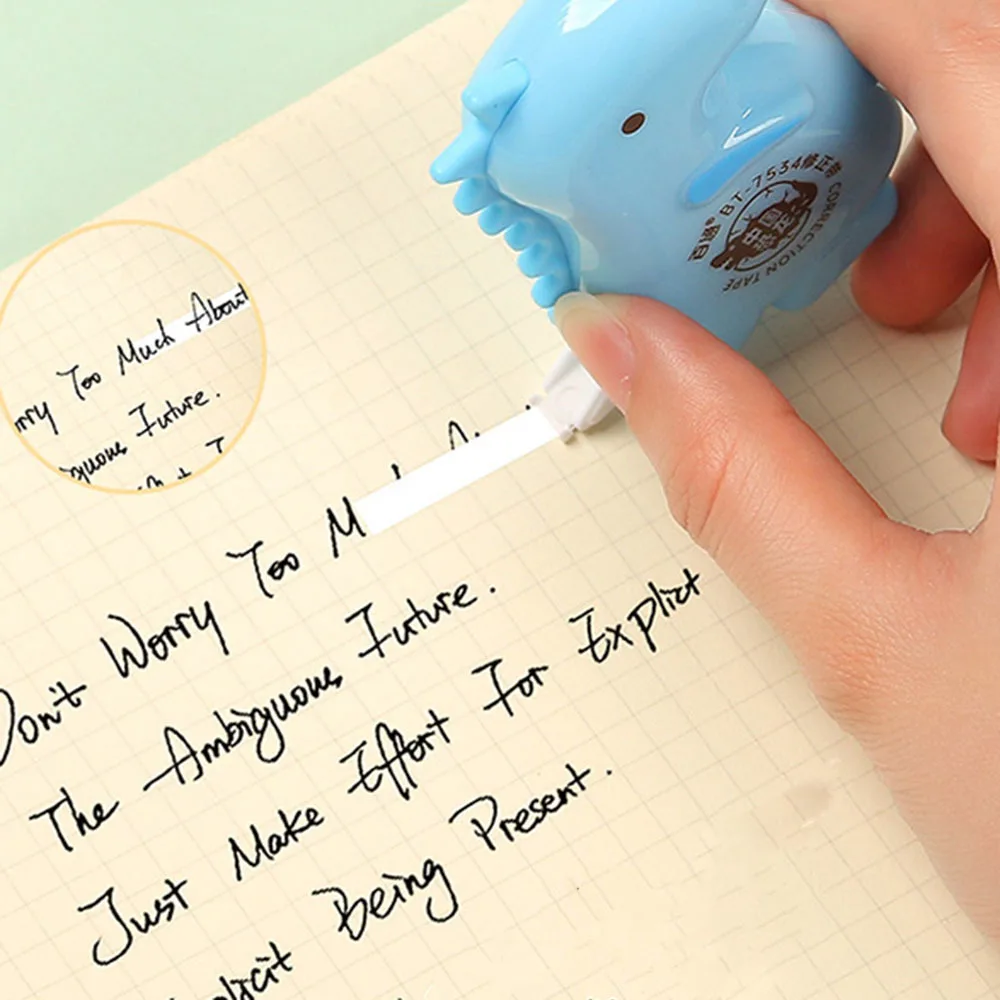 BT-7534修正带
CORRECTION TAPE
中国
恐龙
rry Too Much About
guous Future.
Don't Worry Too M
The Ambiguous Future.
Just Make Effort For Explict
plicit Being Present.